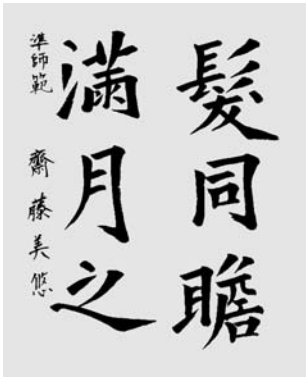 髮同瞻
滿月之
準師範 齋藤美悠